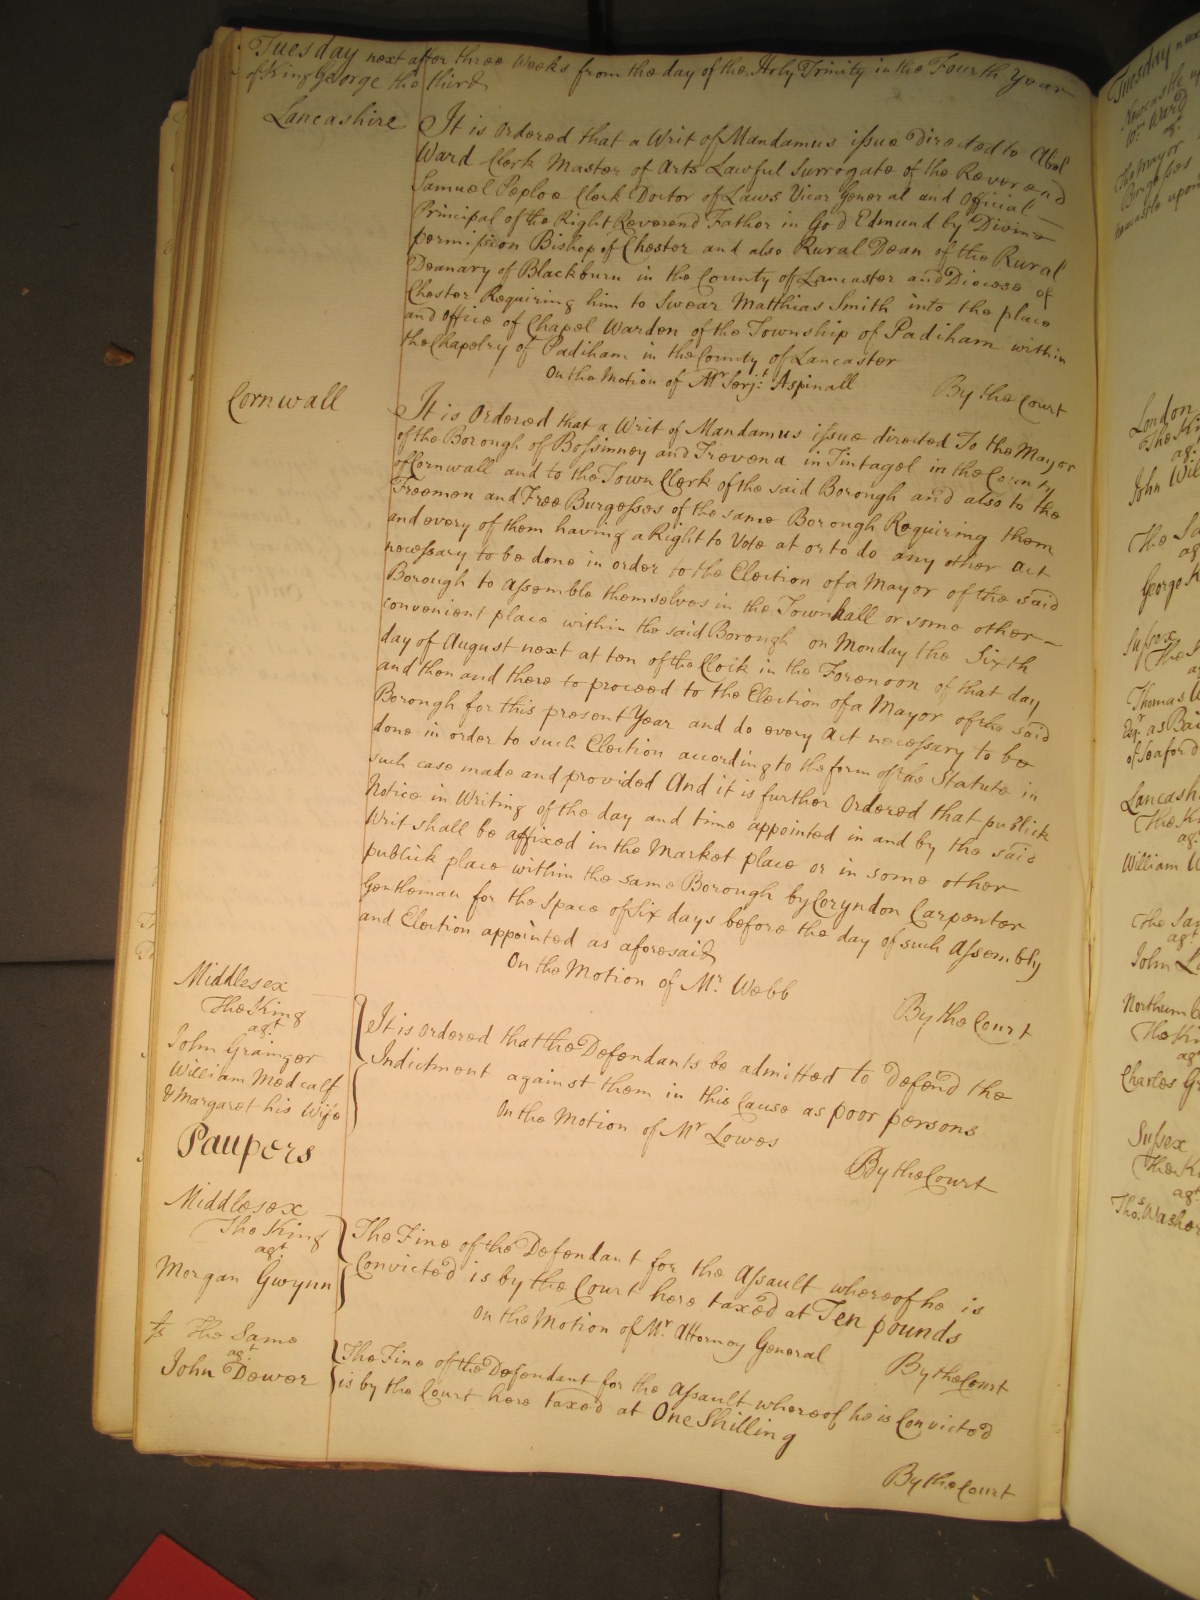 Tuesday next after three Weeks from the day of the Holy Trinity in the Fourth Year
of King George the third
Lancashire
It is Ordered that a Writ of Mandamus issue Directed to Abel
Ward Clerk Master of Arts Lawful Surrogate of the Reverend
Samuel Peploe Clerk Doctor of Laws Vicar General and Official
Principal of the Right Reverend Father in God Edmund by Divine
permission Bishop of Chester and also Rural Dean of the Rural
Deanary of Blackburn in the County of Lancaster and Diocese of
Chester Requiring him to Swear Matthias Smith into the place
and Office of Chapel Warden of the Township of Padiham within
the Chapelry of Padiham in the County of Lancaster
On the Motion of Mr Serjt: Aspinall
By the Court
Cornwall
It is Ordered that a Writ of Mandamus issue directed To the Mayor
of the Borough of Bossinney and Trevena in Tintagel in the County
of Cornwall and to the Town Clerk of the said Borough and also to the
Freemen and Free Burgesses of the same Borough Requiring them
and every of them having a Right to Vote at or to do any other Act
necessary to be done in order to the Election of a Mayor of the said
Borough to assemble themselves in the Townhall or some other
convenient place within the said Borough on Monday the Sixth
day of August next at ten of the Clock in the Forenoon of that day
and then and there to proceed to the Election of a Mayor of the said
Borough for this present Year and do every Act necessary to be
done in order to such Election according to the form of the Statute in
such case made and provided And it is further Ordered that publick
Notice in Writing of the day and time appointed in and by the said
Writ shall be affixed in the Market place or in some other
publick place within the same Borough by Coryndon Carpenter
Gentleman for the Space of Six days before the day of such Assembly
and Election appointed as aforesaid
On the Motion of Mr. Webb
By the Court
Middlesex
The King
agt.
John Grainger
William Medcalf
& Margaret his Wife
Paupers
It is ordered that the Defendants be admitted to Defend the
Indictment against them in this Cause as poor persons
On the Motion of Mr Lowes
By the Court
Middlesex
The King
agt.
Morgan Gwynn
The Fine of the Defendant for the Assault whereof he is
Convicted is by the Court here taxed at Ten pounds
On the Motion of Mr. Attorney General
By the Court
The Same
agt.
John Dewer
The Fine of the Defendant for the Assault whereof he is Convicted
is by the Court here taxed at One Shilling
By the Court
Tuesday
Newcastle
Wm Ward
The Mayor
Burgesses
London
John
The
George
Sussex
Thomas
of Seaford
William
The
agt
John
agt
Charles
Sussex
agt
Thos.